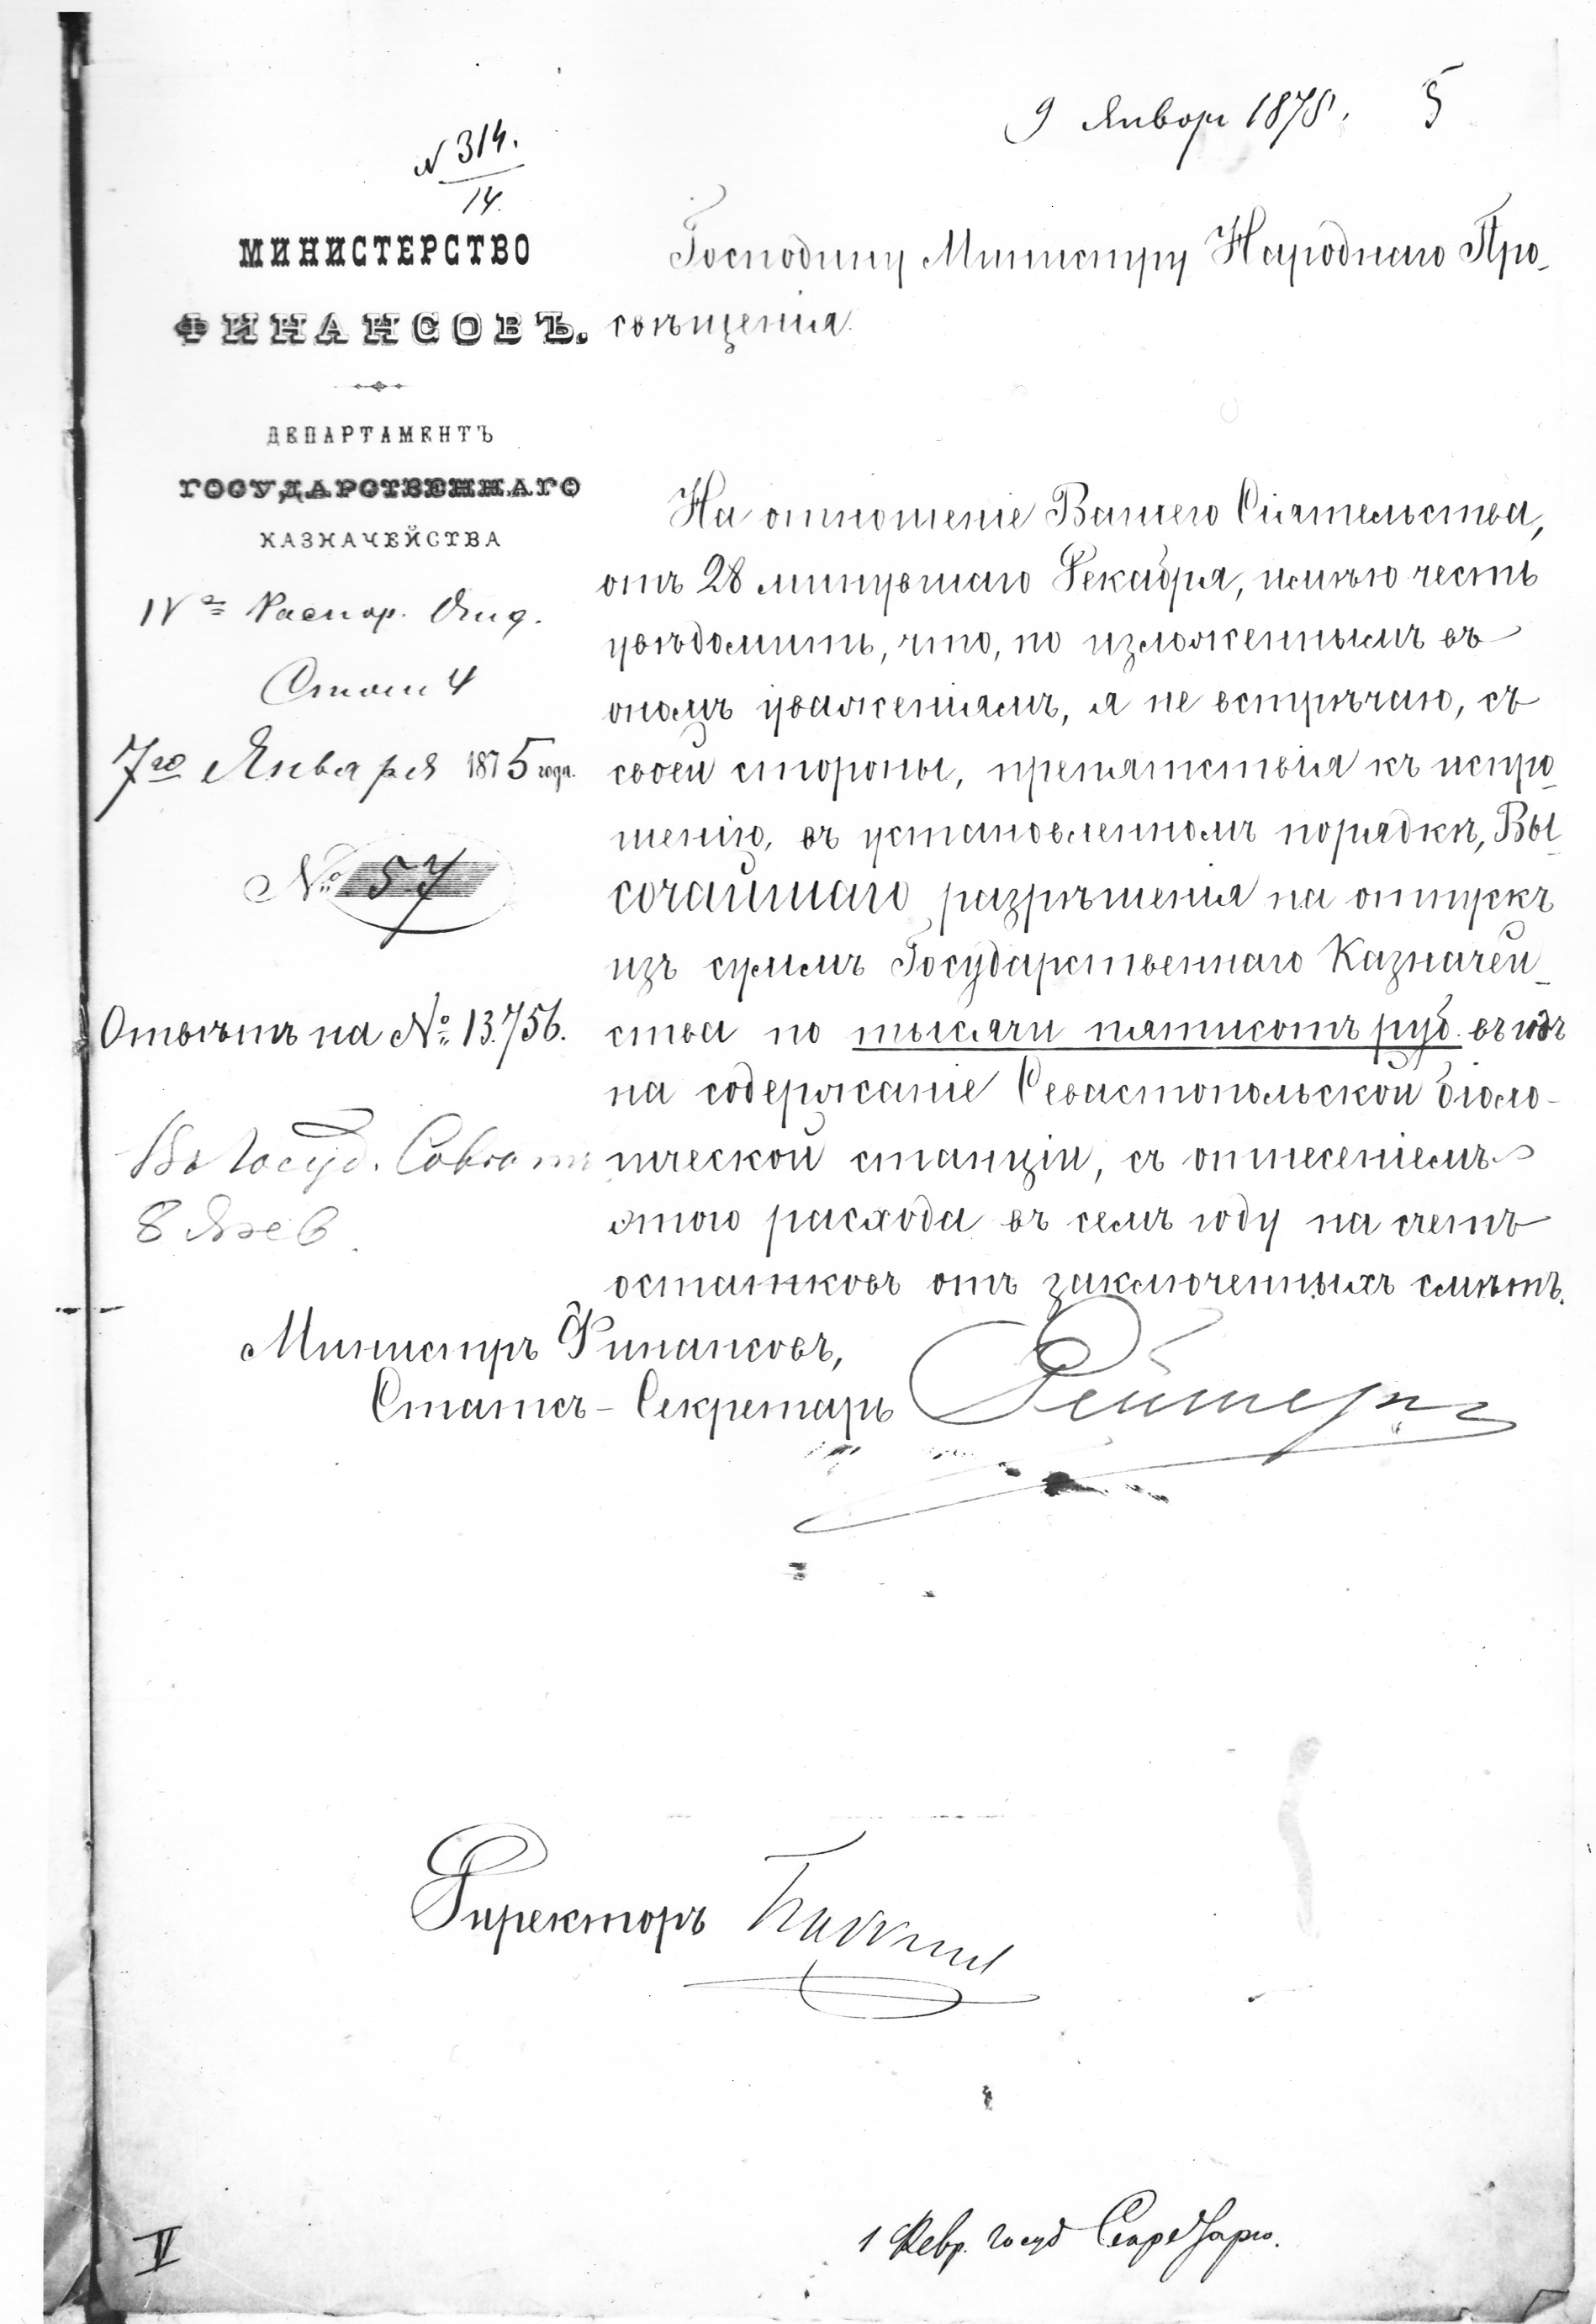 9 Январ 1875. 5
N 314.
14.
МИНИСТЕРСТВО
ФИНАНСОВЪ.
ДЕПАРТАМЕНТЪ
ГОСУДАРСТВЕННАГО
КАЗНАЧЕЙСТВА
IVе Распор. Отд.
Столъ 4
7го Января 1875 года.
№ 57
Отвѣтъ на № 13.756.
Въ Госуд. Совѣтъ
8 Янв.
Господину Министру Народнаго Про-
свѣщенія.
На отношеніе Вашего Сіятельства,
отъ 28 минувшаго Декабря, имѣю честь
увѣдомить, что, по изложеннымъ въ
ономъ уваженіямъ, я не встрѣчаю, съ
своей стороны, препятствія къ испро-
шенію, въ установленномъ порядкѣ, Вы-
сочайшаго разрѣшенія на отпускъ
изъ суммъ Государственнаго Казначей-
ства по тысячи пятисотъ руб. въ годъ
на содержаніе Севастопольской біоло-
гической станціи, съ отнесеніемъ
этого расхода въ семъ году на счетъ
остатковъ отъ заключенныхъ смѣтъ.
Министръ Финансовъ,
Статсъ-Секретарь Рейтернъ
Директоръ
1 Февр. Госуд Секретарю.
II